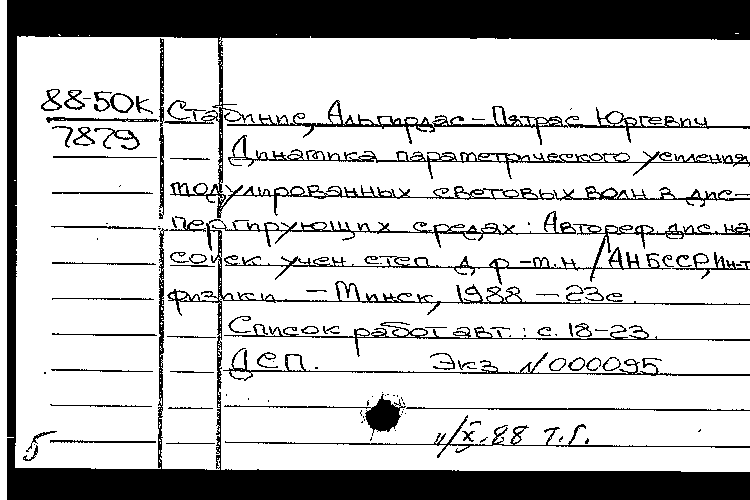 88-50К
7879
Стабинис, Альгирдас-Пятрас Юргевич
Динамика параметрического усиления
модулированных световых волн в дис-
пергирующих средах: Автореф. дис. на
соиск. учен. степ. д. ф.-м.н. / АН БССР, Ин-т
физики. - Минск, 1988 - 23 с.
Список работ авт.: с. 18-23.
ДСП. Экз N000095
11/X-88 Т.Г.
5